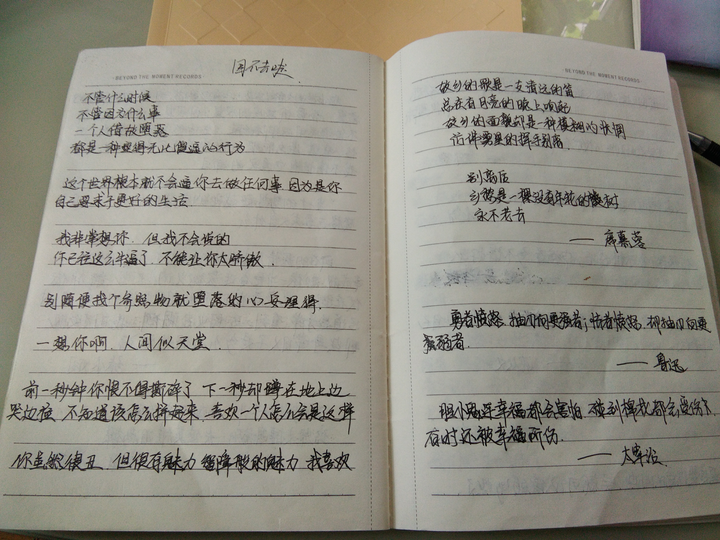 BEYOND THE MOMENT RECORDS
不管什么时候
不管因为什么事
一个人借故堕落
都是一种显得无比傻逼的行为
这个世界根本就不会逼你去做任何事 因为是你
自己要求于更好的生活
我非常想你,但我不会说的
你已经这么牛逼了,不能让你太骄傲.
别随便找个参照物就堕落的心安理得.
一想你啊,人间似天堂.
前一秒钟你恨不得撕碎了 下一秒却蹲在地上边
哭边捡,不知道该怎么拼起来,喜欢一个人怎么会是这样
你虽然很丑,但很有魅力 的魅力 我喜欢
BEYOND THE MOMENT RECORDS
故乡的歌是一支清远的笛
总在有月亮的晚上响起
故乡的面貌却是一种模糊的怅惘
仿佛雾里的挥手别离
别离后
乡愁是一棵没有年轮的树
永不老去
——席慕蓉
勇者愤怒,抽刃向更强者;怯者愤怒,却抽刃向更
弱者.
——鲁迅
胆小鬼连幸福都会害怕,碰到棉花都会受伤,
有时还被幸福所伤.
——太宰治